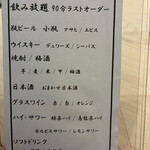 飲み放題 90分ラストオーダー
瓶ビール 小瓶 アサヒ/エビス
ウイスキー デュワーズ/シーバス
焼酎/梅酒
芋/麦/米/甲/梅酒
日本酒 おまかせ日本酒
グラスワイン 赤/白/オレンジ
ハイ・サワー
カルピスサワー/レモンサワー
ソフトドリンク